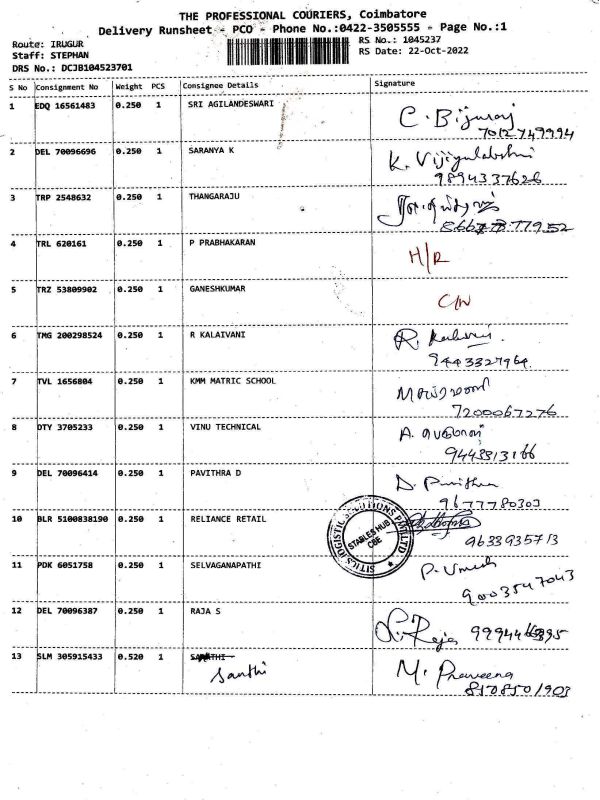 THE PROFESSIONAL COURIERS, Coimbatore
Delivery Runsheet - PCO - Phone No.:0422-3505555 - Page No.:1
Route: IRUGUR
Staff: STEPHAN
DRS No.: DCJB104523701
RS No.: 1045237
RS Date: 22-Oct-2022
S No Consignment No Weight PCS Consignee Details Signature
1 EDQ 16561483 0.250 1 SRI AGILANDESWARI C. Bijuraj
7012749994
2 DEL 70096696 0.250 1 SARANYA K K. Vijiyalakshmi
9894337626
3 TRP 2548632 0.250 1 THANGARAJU
4 TRL 620161 0.250 1 P PRABHAKARAN H/R
5 TRZ 53809902 0.250 1 GANESHKUMAR
6 TMG 200298524 0.250 1 R KALAIVANI R.
9443327964
7 TVL 1656804 0.250 1 KMM MATRIC SCHOOL
7200067276
8 DTY 3705233 0.250 1 VINU TECHNICAL A.
9443313166
9 DEL 70096414 0.250 1 PAVITHRA D D.
9677780303
10 BLR 5100838190 0.250 1 RELIANCE RETAIL
9633935713
SITICS LOGISTIC SOLUTIONS PVT LTD.
STABLES HUB
CBE
11 PDK 6051758 0.250 1 SELVAGANAPATHI P. Umesh
9003547043
12 DEL 70096387 0.250 1 RAJA S Raja
13 SLM 305915433 0.520 1 M. Praveena
Santhi 8108501903